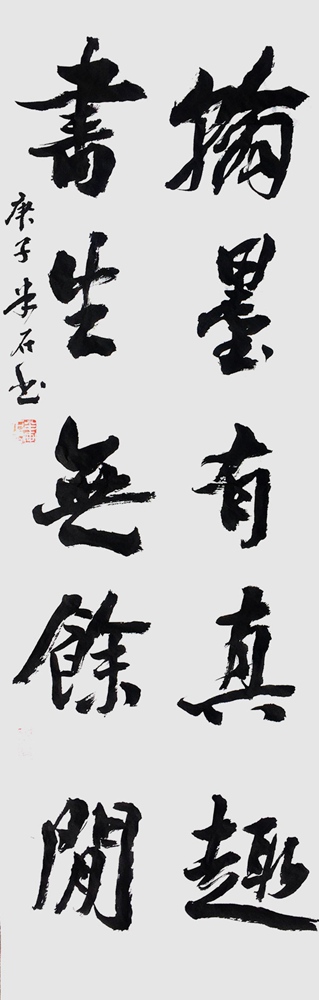 翰墨有真趣
書生無餘閒
庚子 米石書